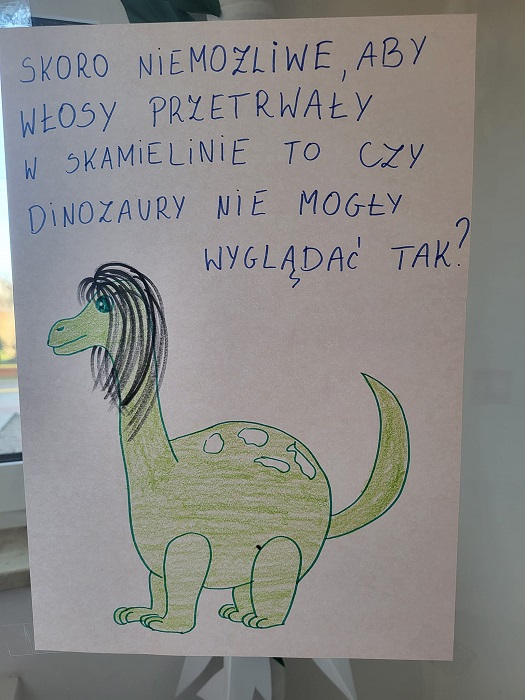 SKORO NIEMOŻLIWE, ABY
WŁOSY PRZETRWAŁY
W SKAMIELINIE TO CZY
DINOZAURY NIE MOGŁY
WYGLĄDAĆ TAK?